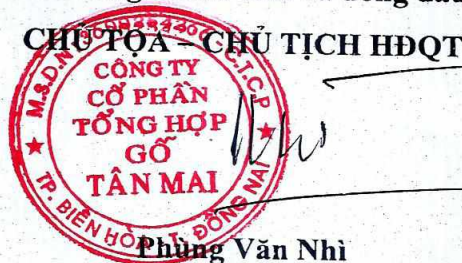 CHỦ TỌA – CHỦ TỊCH HĐQT
CÔNG TY
CỔ PHẦN
TỔNG HỢP
GỖ
TÂN MAI
TP. BIÊN HÒA - T. ĐỒNG NAI
Phùng Văn Nhì